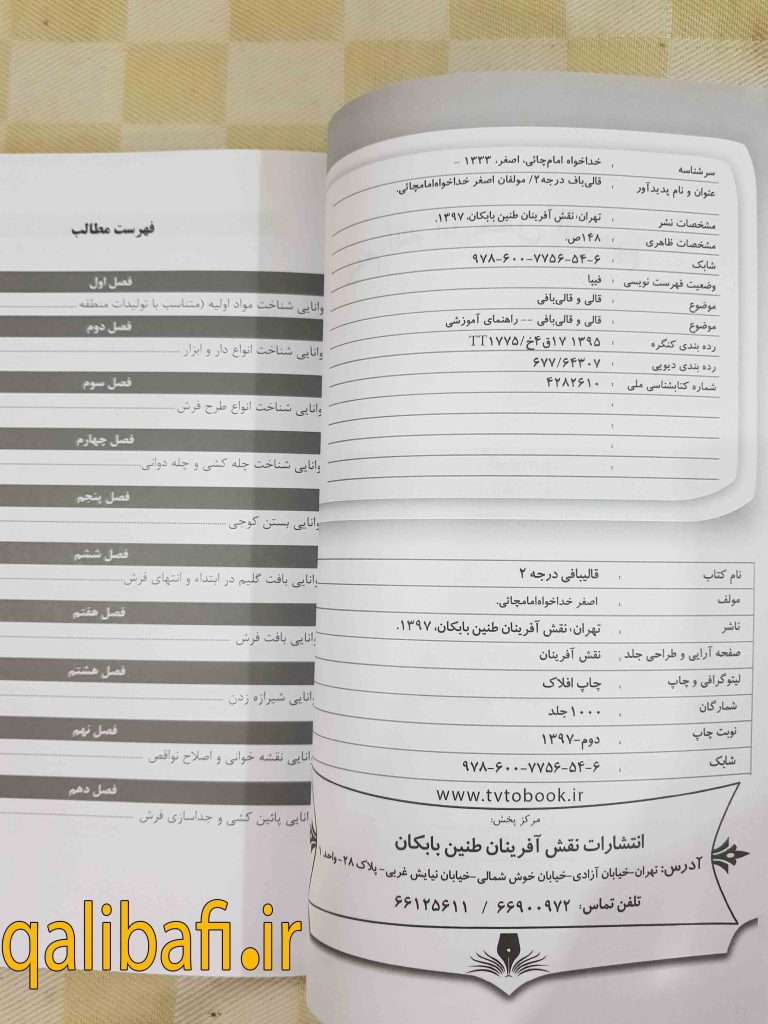 سرشناسه : خداخواه امام‌چائی، اصغر، ۱۳۳۳ -
عنوان و نام پدیدآور : قالی‌باف درجه۲/ مولفان اصغر خداخواه‌امامچائی.
مشخصات نشر : تهران، نقش آفرینان طنین بابکان، ۱۳۹۷.
مشخصات ظاهری : ۱۴۸ص.
شابک : ۹۷۸-۶۰۰-۷۷۵۶-۵۴-۶
وضعیت فهرست نویسی : فیپا
موضوع : قالی و قالی‌بافی
موضوع : قالی و قالی‌بافی -- راهنمای آموزشی
رده بندی کنگره : TT۱۷۷۵/خ۴ق۱۷ ۱۳۹۵
رده بندی دیویی : ۶۷۷/۶۴۳۰۷
شماره کتابشناسی ملی : ۴۲۸۲۶۱۰
نام کتاب : قالیبافی درجه ۲
مولف : اصغر خداخواه‌امامچائی.
ناشر : تهران، نقش آفرینان طنین بابکان، ۱۳۹۷.
صفحه آرایی و طراحی جلد : نقش آفرینان
لیتوگرافی و چاپ : چاپ افلاک
شمارگان : ۱۰۰۰ جلد
نوبت چاپ : دوم-۱۳۹۷
شابک : ۹۷۸-۶۰۰-۷۷۵۶-۵۴-۶
www.tvtobook.ir
مرکز پخش:
انتشارات نقش آفرینان طنین بابکان
آدرس: تهران-خیابان آزادی-خیابان خوش شمالی-خیابان نیایش غربی- پلاک ۲۸-واحد ۱
تلفن تماس: ۶۶۹۰۰۹۷۲ / ۶۶۱۲۵۶۱۱
فهرست مطالب
فصل اول
وانایی شناخت مواد اولیه (متناسب با تولیدات منطقه
فصل دوم
وانایی شناخت انواع دار و ابزار
فصل سوم
وانایی شناخت انواع طرح فرش
فصل چهارم
وانایی شناخت چله کشی و چله دوانی
فصل پنجم
وانایی بستن کوجی
فصل ششم
وانایی بافت گلیم در ابتداء و انتهای فرش
فصل هفتم
وانایی بافت فرش
فصل هشتم
وانایی شیرازه زدن
فصل نهم
وانایی نقشه خوانی و اصلاح نواقص
فصل دهم
وانایی پائین کشی و جداسازی فرش
qalibafi.ir